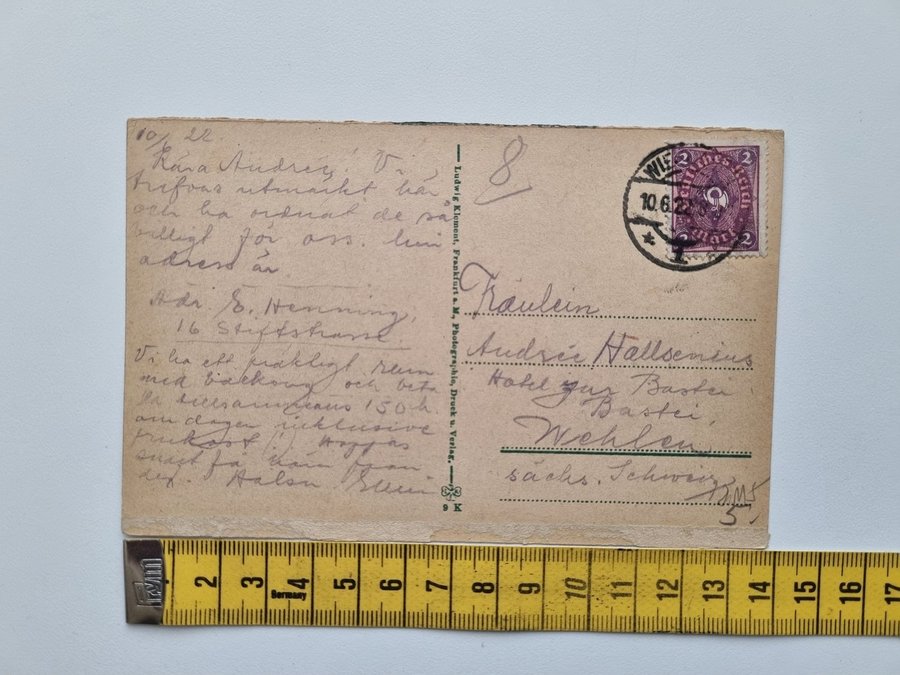 10/6 22.
Kära Andrée! Vi
trifvas utmärkt här
och ha ordnat de så
billigt för oss. Min
adress är
Adr. E. Henning,
16 Stiftstrasse
Vi ha ett präktigt rum
med balkong och beta
la tillsammans 150 k.
om dagen inklusive
frukost (!) Hoppas
snart få höra från
dig. Hälsn
Ludwig Klement, Frankfurt a. M., Photographie, Druck u. Verlag.
9 K
8
WIE
10.6.22
1
2 2
Deutsches Reich
2 2
Fräulein
Andrée Hallsenius
Hotel zur Bastei
Bastei
Wehlen
sächs. Schweiz
5
Germany
2 3 4 5 6 7 8 9 10 11 12 13 14 15 16 17